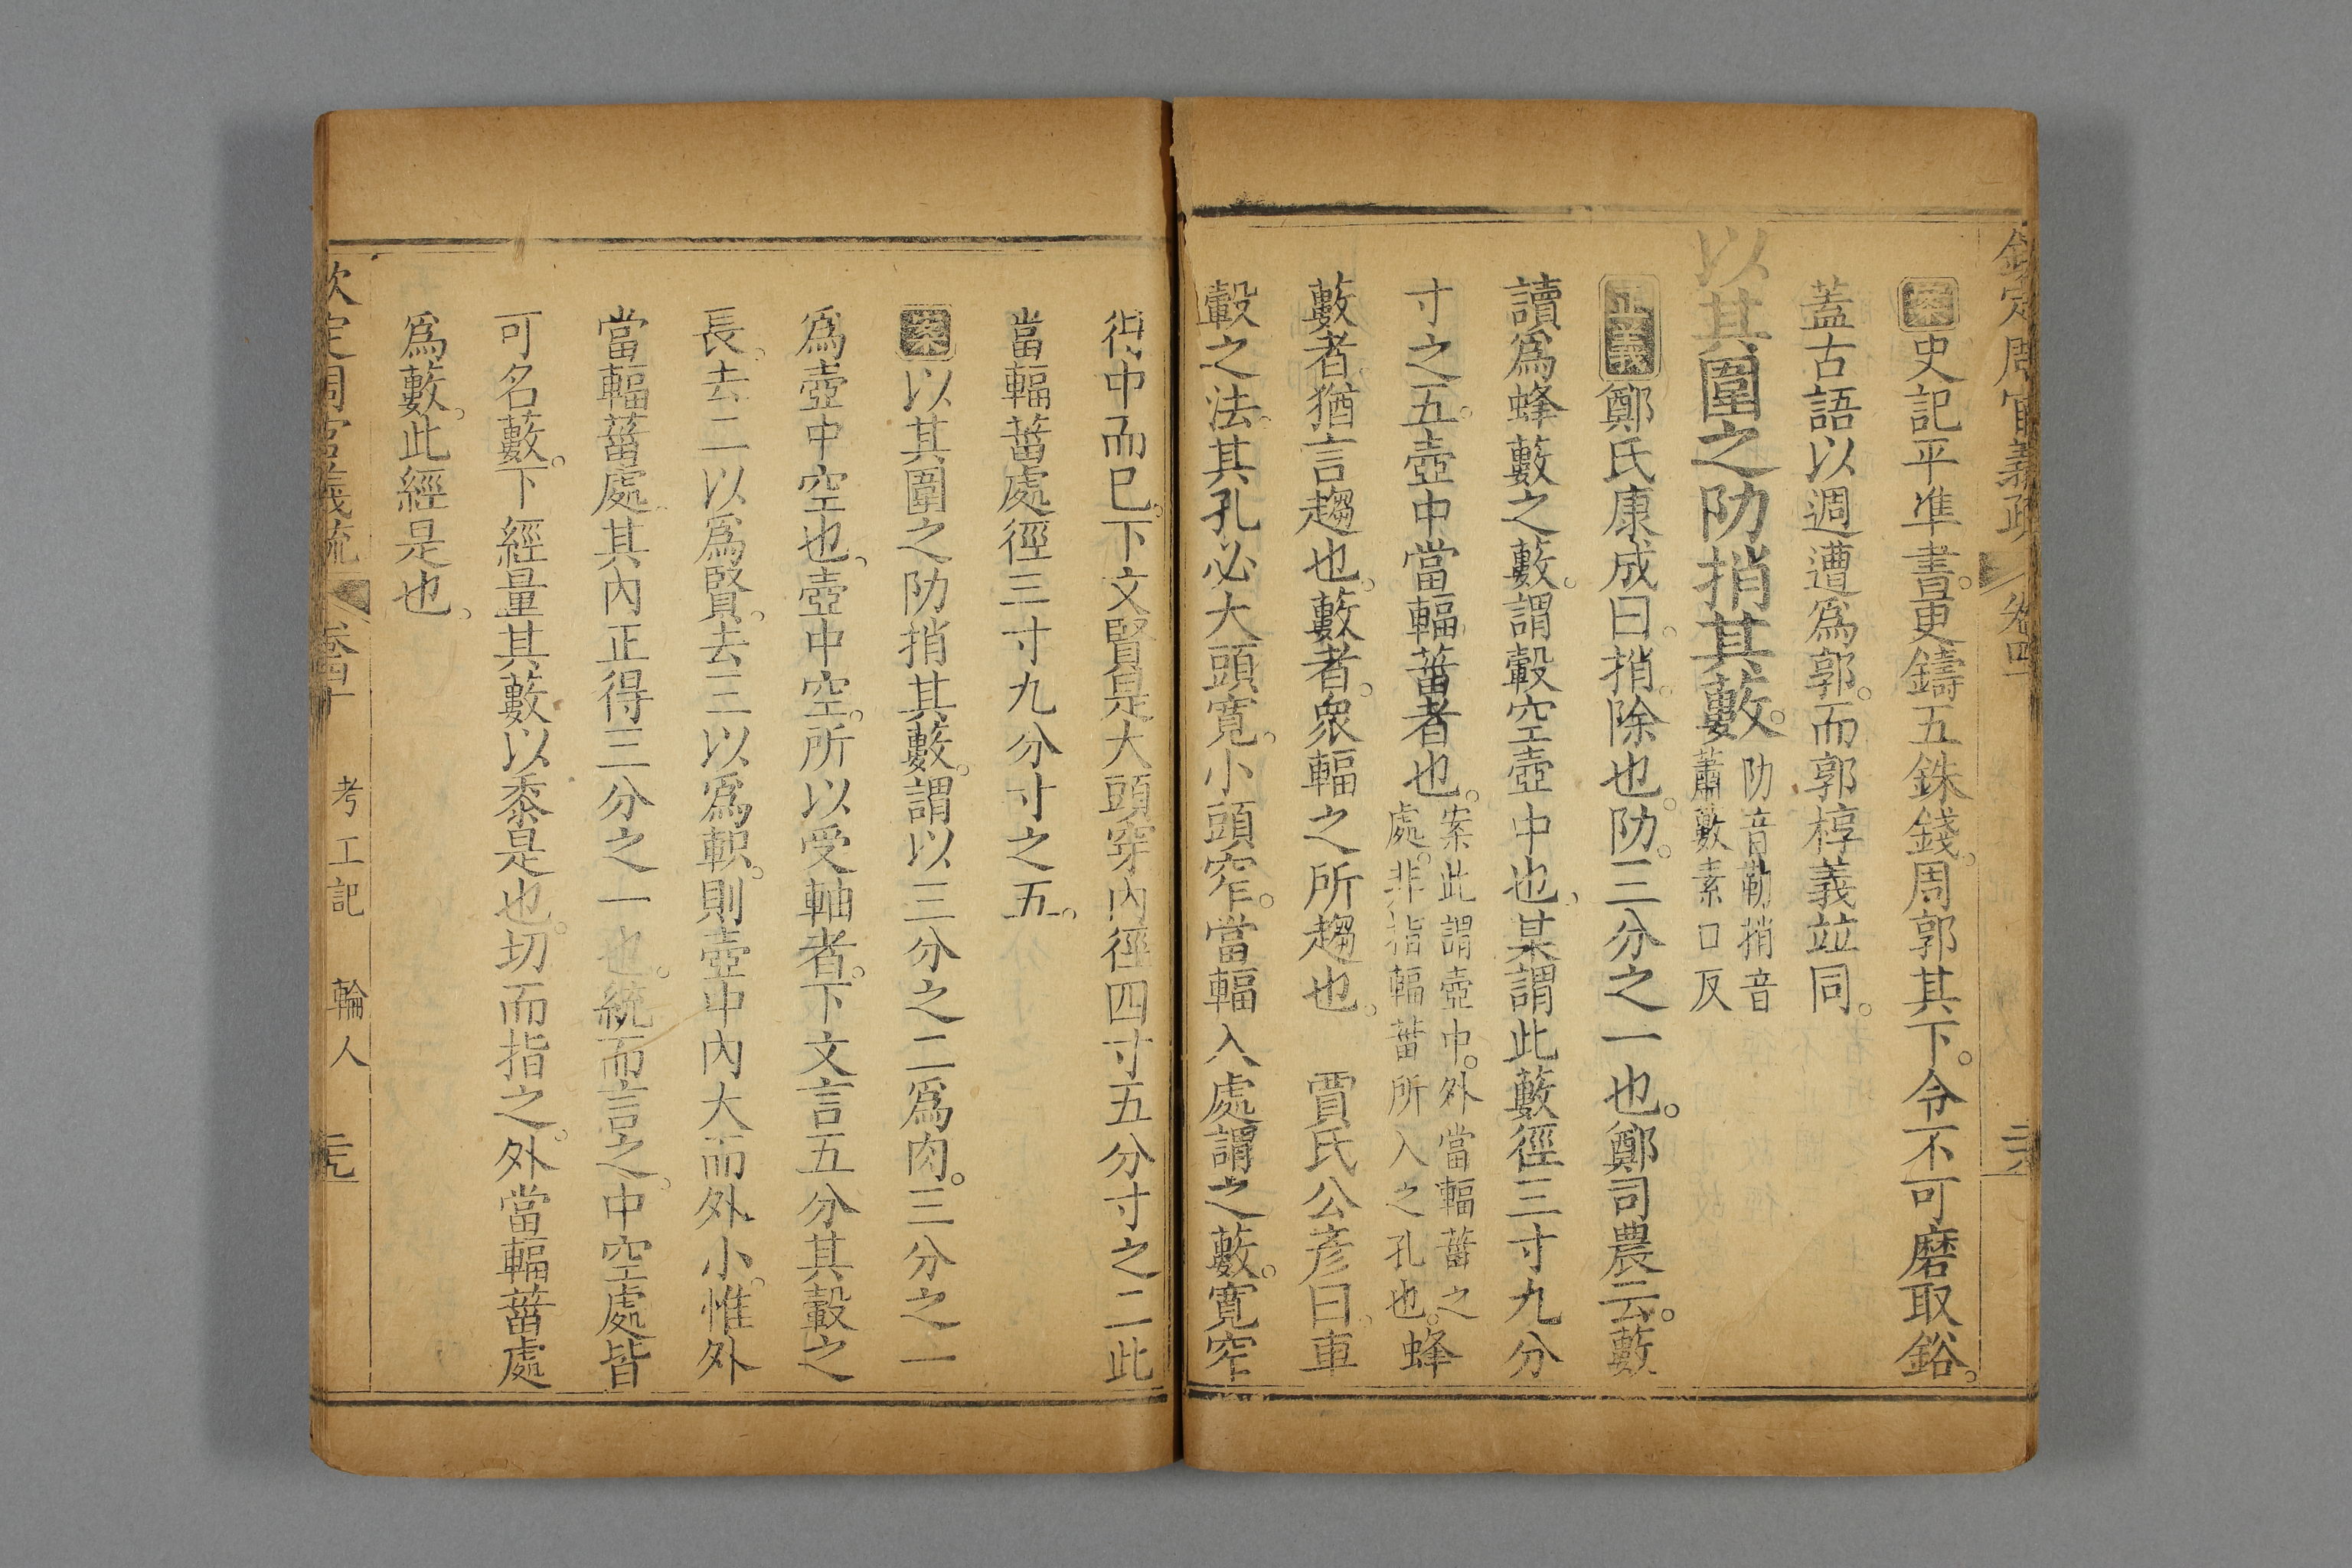 欽定周官義疏 卷四十 二六
案史記平準書更鑄五銖錢周郭其下令不可磨取鋊
蓋古語以週遭爲郭而郭椁義竝同
以其圍之阞捎其藪 阞音勒捎音蕭藪素口反
正義鄭氏康成曰捎除也阞三分之一也鄭司農云藪
讀爲蜂藪之藪謂轂空壺中也某謂此藪徑三寸九分
寸之五壺中當輻菑者也 案此謂壺中外當輻菑之處非指輻菑所入之孔也 蜂
藪者猶言趨也藪者衆輻之所趨也 賈氏公彥曰車
轂之法其孔必大頭寬小頭窄當輻入處謂之藪寬窄
得中而已下文賢是大頭穿內徑四寸五分寸之二此
當輻菑處徑三寸九分寸之五
案以其圍之阞捎其藪謂以三分之二爲肉三分之一
爲壺中空也壺中空所以受軸者下文言五分其轂之
長去二以爲賢去三以爲軹則壺中內大而外小惟外
當輻菑處其內正得三分之一也統而言之中空處皆
可名藪下經量其藪以黍是也切而指之外當輻菑處
爲藪此經是也
欽定周官義疏 卷四十 考工記 輪人 二九